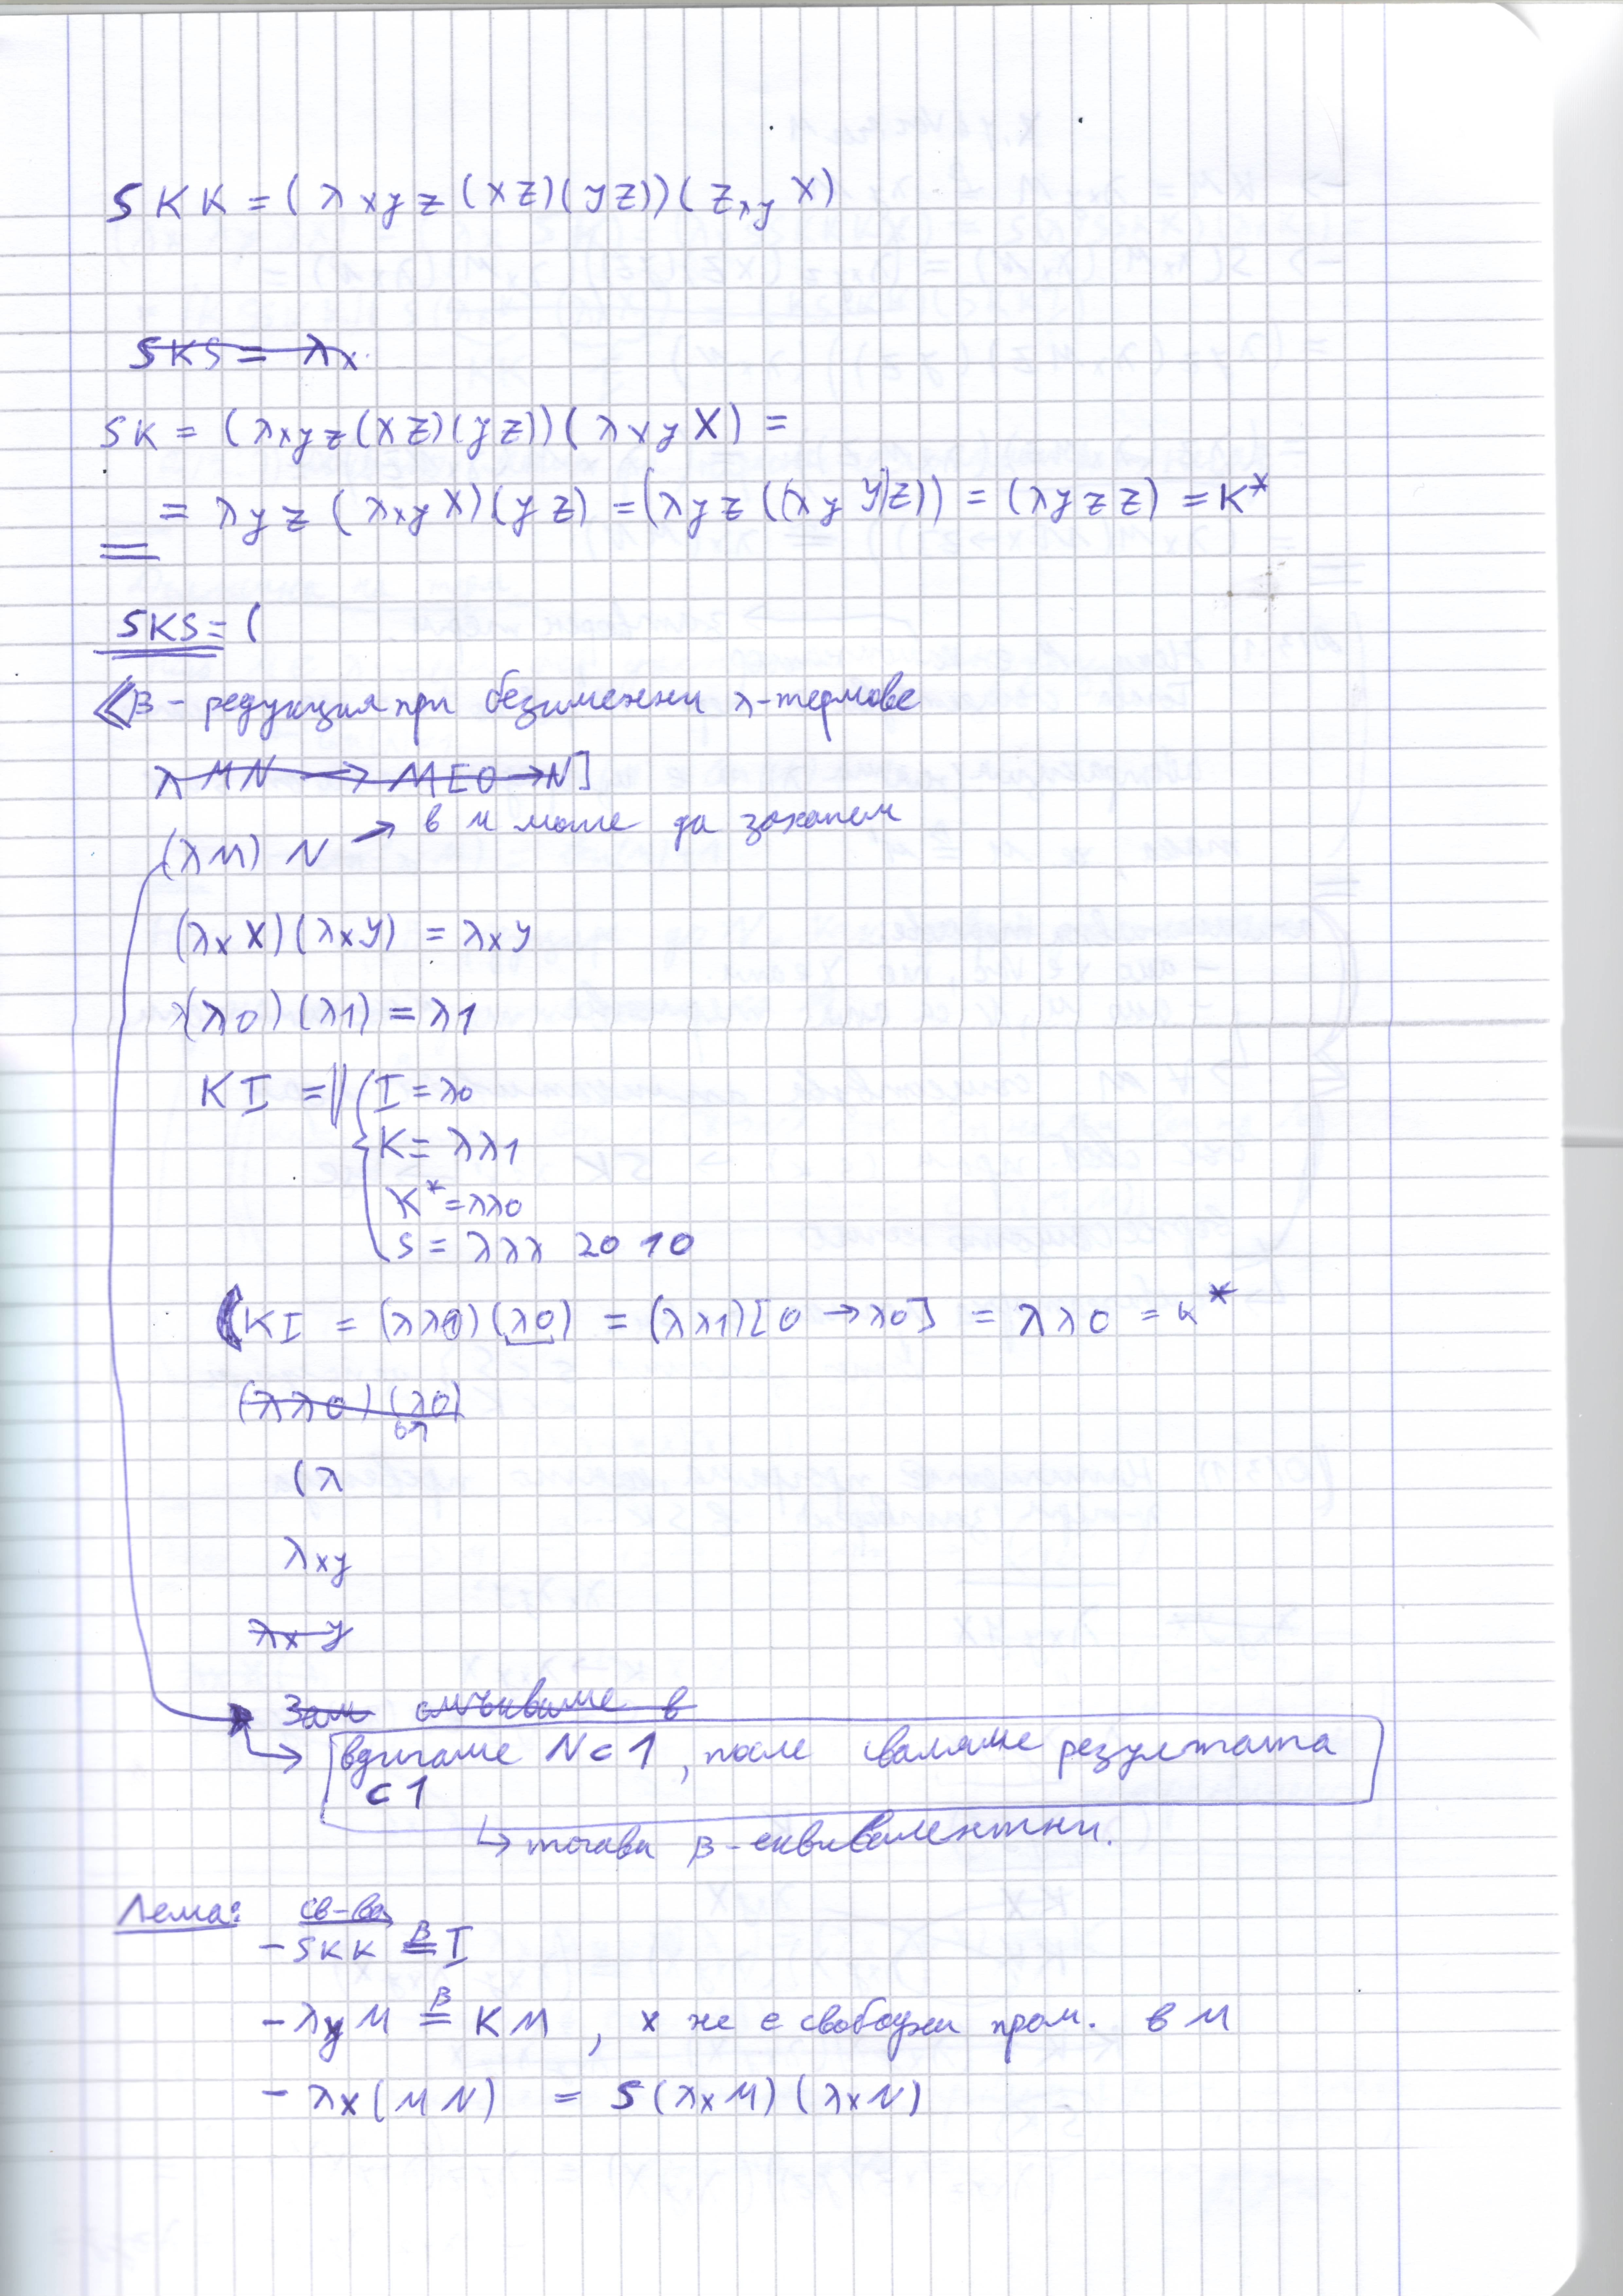 SKK = (λxyz (xz)(yz))(zλy x)
SKS = λx
SK = (λxyz(xz)(yz))(λxy x) =
= λyz (λxy x)(yz) = (λyz ((λy y)z)) = (λyz z) = K*
SKS = (
β - редукция при безименни λ-термове
λ M N → M[0 → N]
(λM) N → в м може да захапем
(λx x)(λx y) = λx y
λ(λ0)(λ1) = λ1
KI = || { I = λ0
K = λλ1
K* = λλ0
S = λλλ 20 10
(KI = (λλ1)(λ0) = (λλ1)[0 → λ0] = λλ0 = K*
(λλ0)(λ0)
(λ
λxy
λx y
Зам смъкваме в
вдигаме N с 1, после сваляме резултата
с 1
↳ тогава β-еквивалентни.
Лема: св-ва
- SKK β= I
- λy M β= KM , x не е свободна пром. в M
- λx(MN) = S(λx M)(λx N)